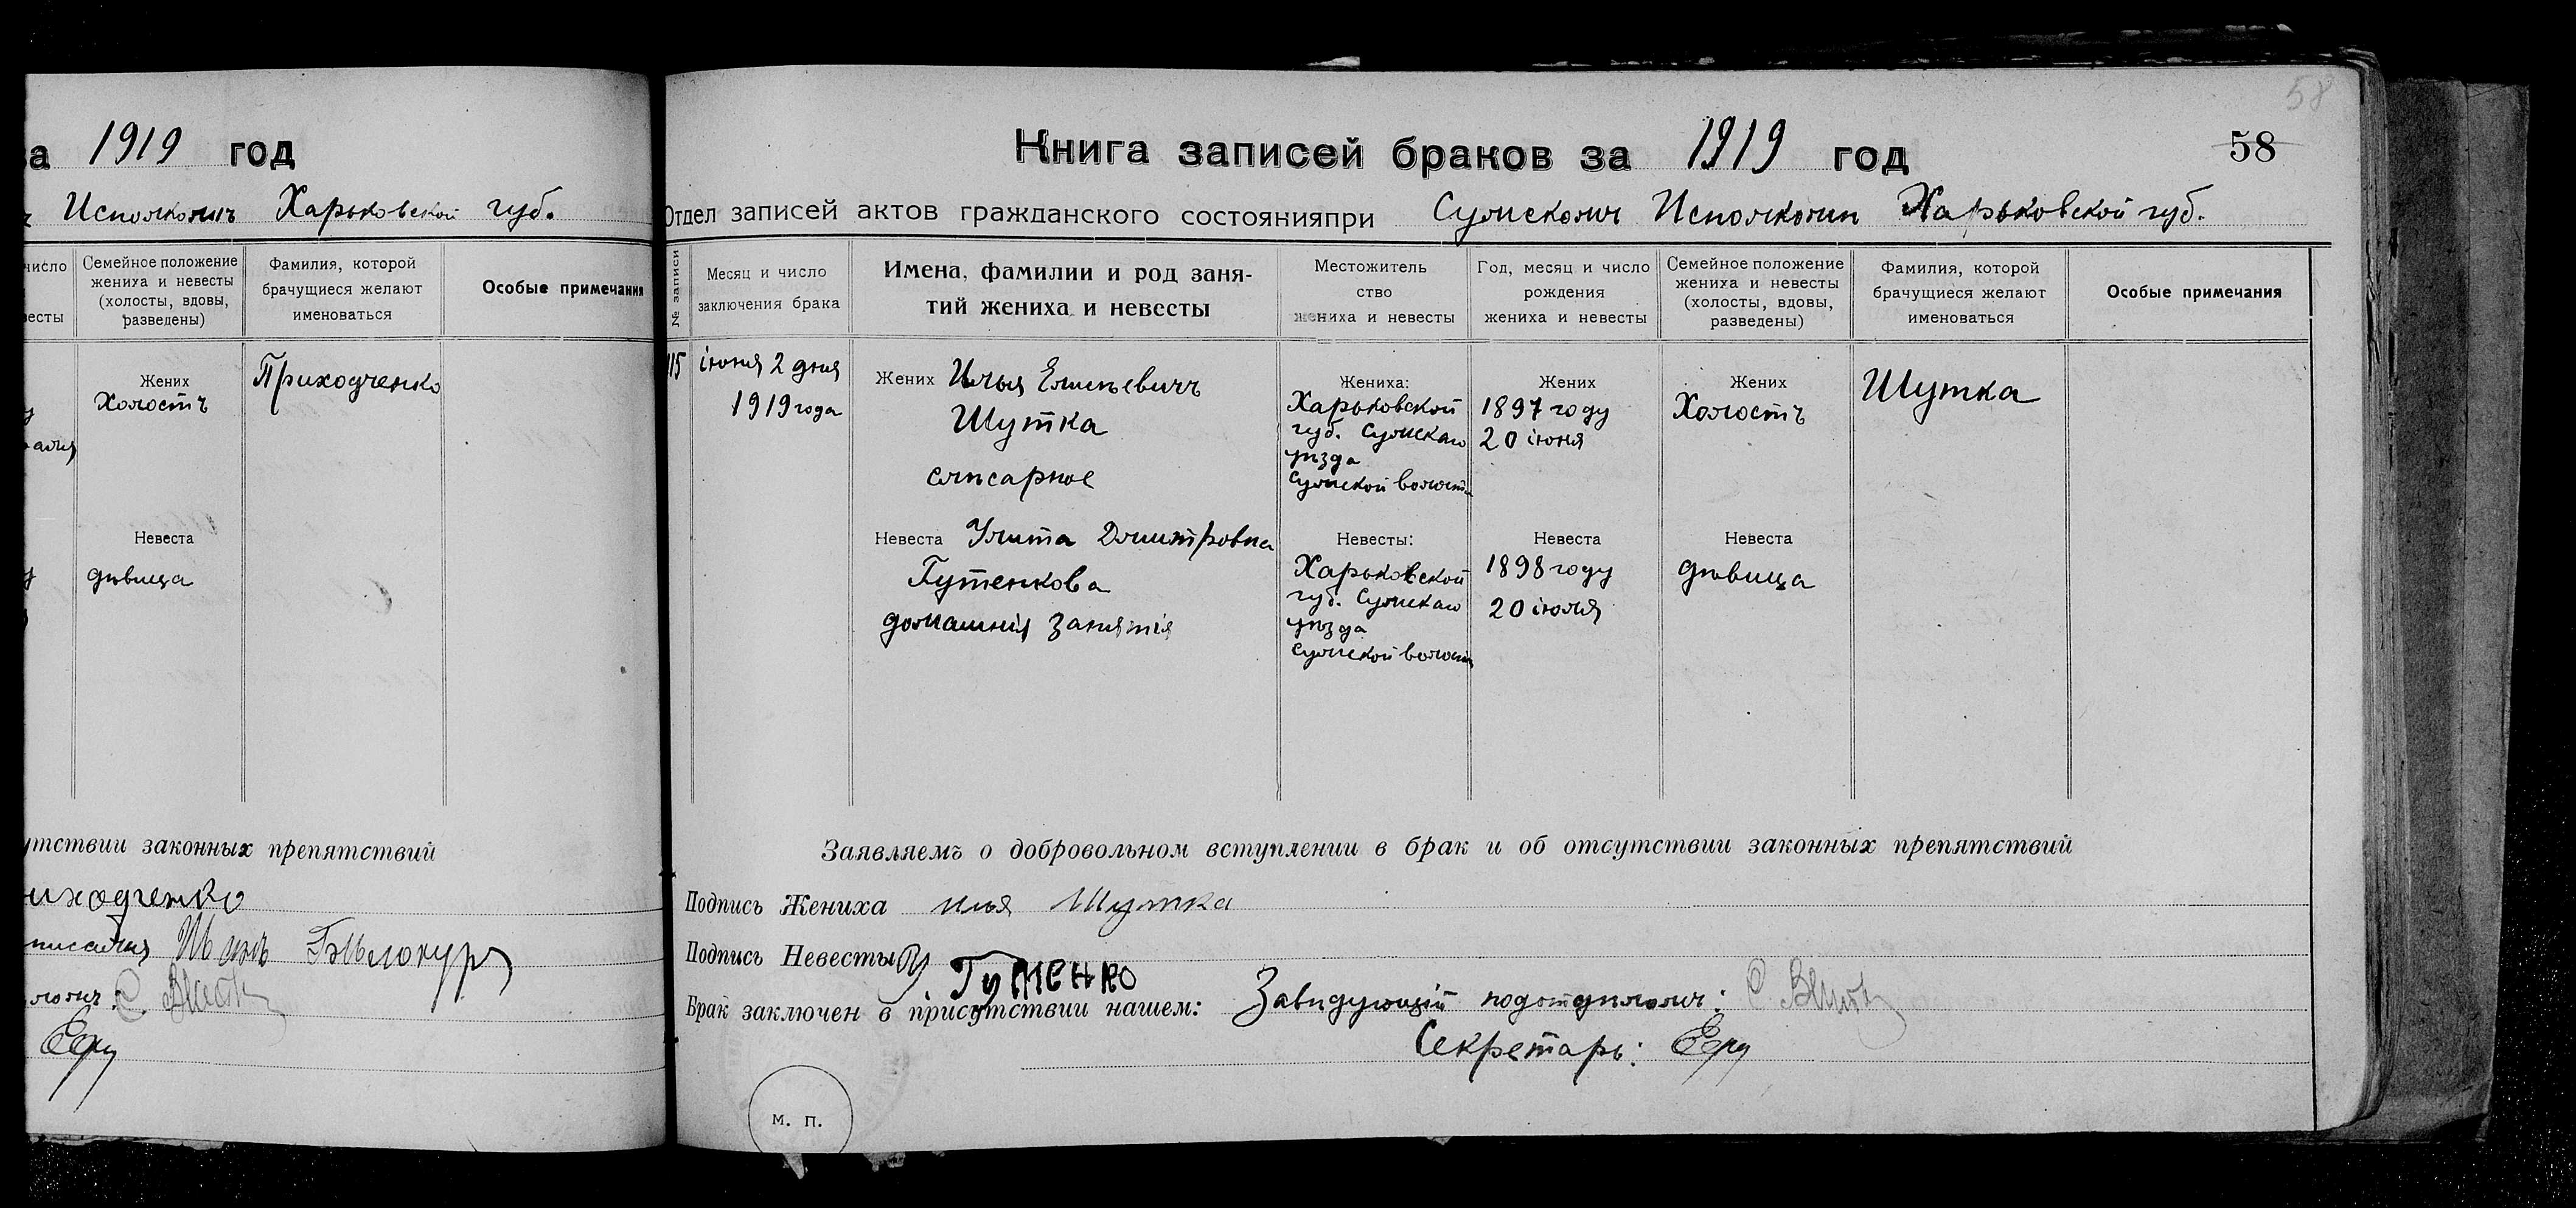 а 1919 год
Исполкомъ Харьковской губ.
число
весты
Семейное положение
жениха и невесты
(холосты, вдовы,
разведены)
Фамилия, которой
брачущиеся желают
именоваться
Особые примечания
Жених
Холостъ
Приходченко
Невеста
дѣвица
утствии законных препятствий
иходченко
Бѣлокуръ
58
Книга записей браков за 1919 год
58
Отдел записей актов гражданского состоянияпри Сумском Исполкомѣ Харьковской губ.
№ записи
Месяц и число
заключения брака
Имена, фамилии и род заня-
тий жениха и невесты
Местожитель
ство
жениха и невесты
Год, месяц и число
рождения
жениха и невесты
Семейное положение
жениха и невесты
(холосты, вдовы,
разведены)
Фамилия, которой
брачущиеся желают
именоваться
Особые примечания
115
іюня 2 дня
1919 года
Жених Илья
Шутка
слѣсарное
Жениха:
Харьковской
губ. Сумскаго
уѣзда
Сумской волости
Жених
1897 году
20 іюня
Жених
Холостъ
Шутка
Невеста Улита Дмитровна
Гутенкова
домашнія занятія
Невесты:
Харьковской
губ. Сумскаго
уѣзда
Сумской волости
Невеста
1898 году
20 іюля
Невеста
дѣвица
Заявляемъ о добровольном вступлении в брак и об отсутствии законных препятствий
Подпись Жениха илья Шутка
Подпись Невесты У. Гутенко
Брак заключен в присутствии нашем: Завидующій подотдѣломъ:
Секретарь:
м. п.